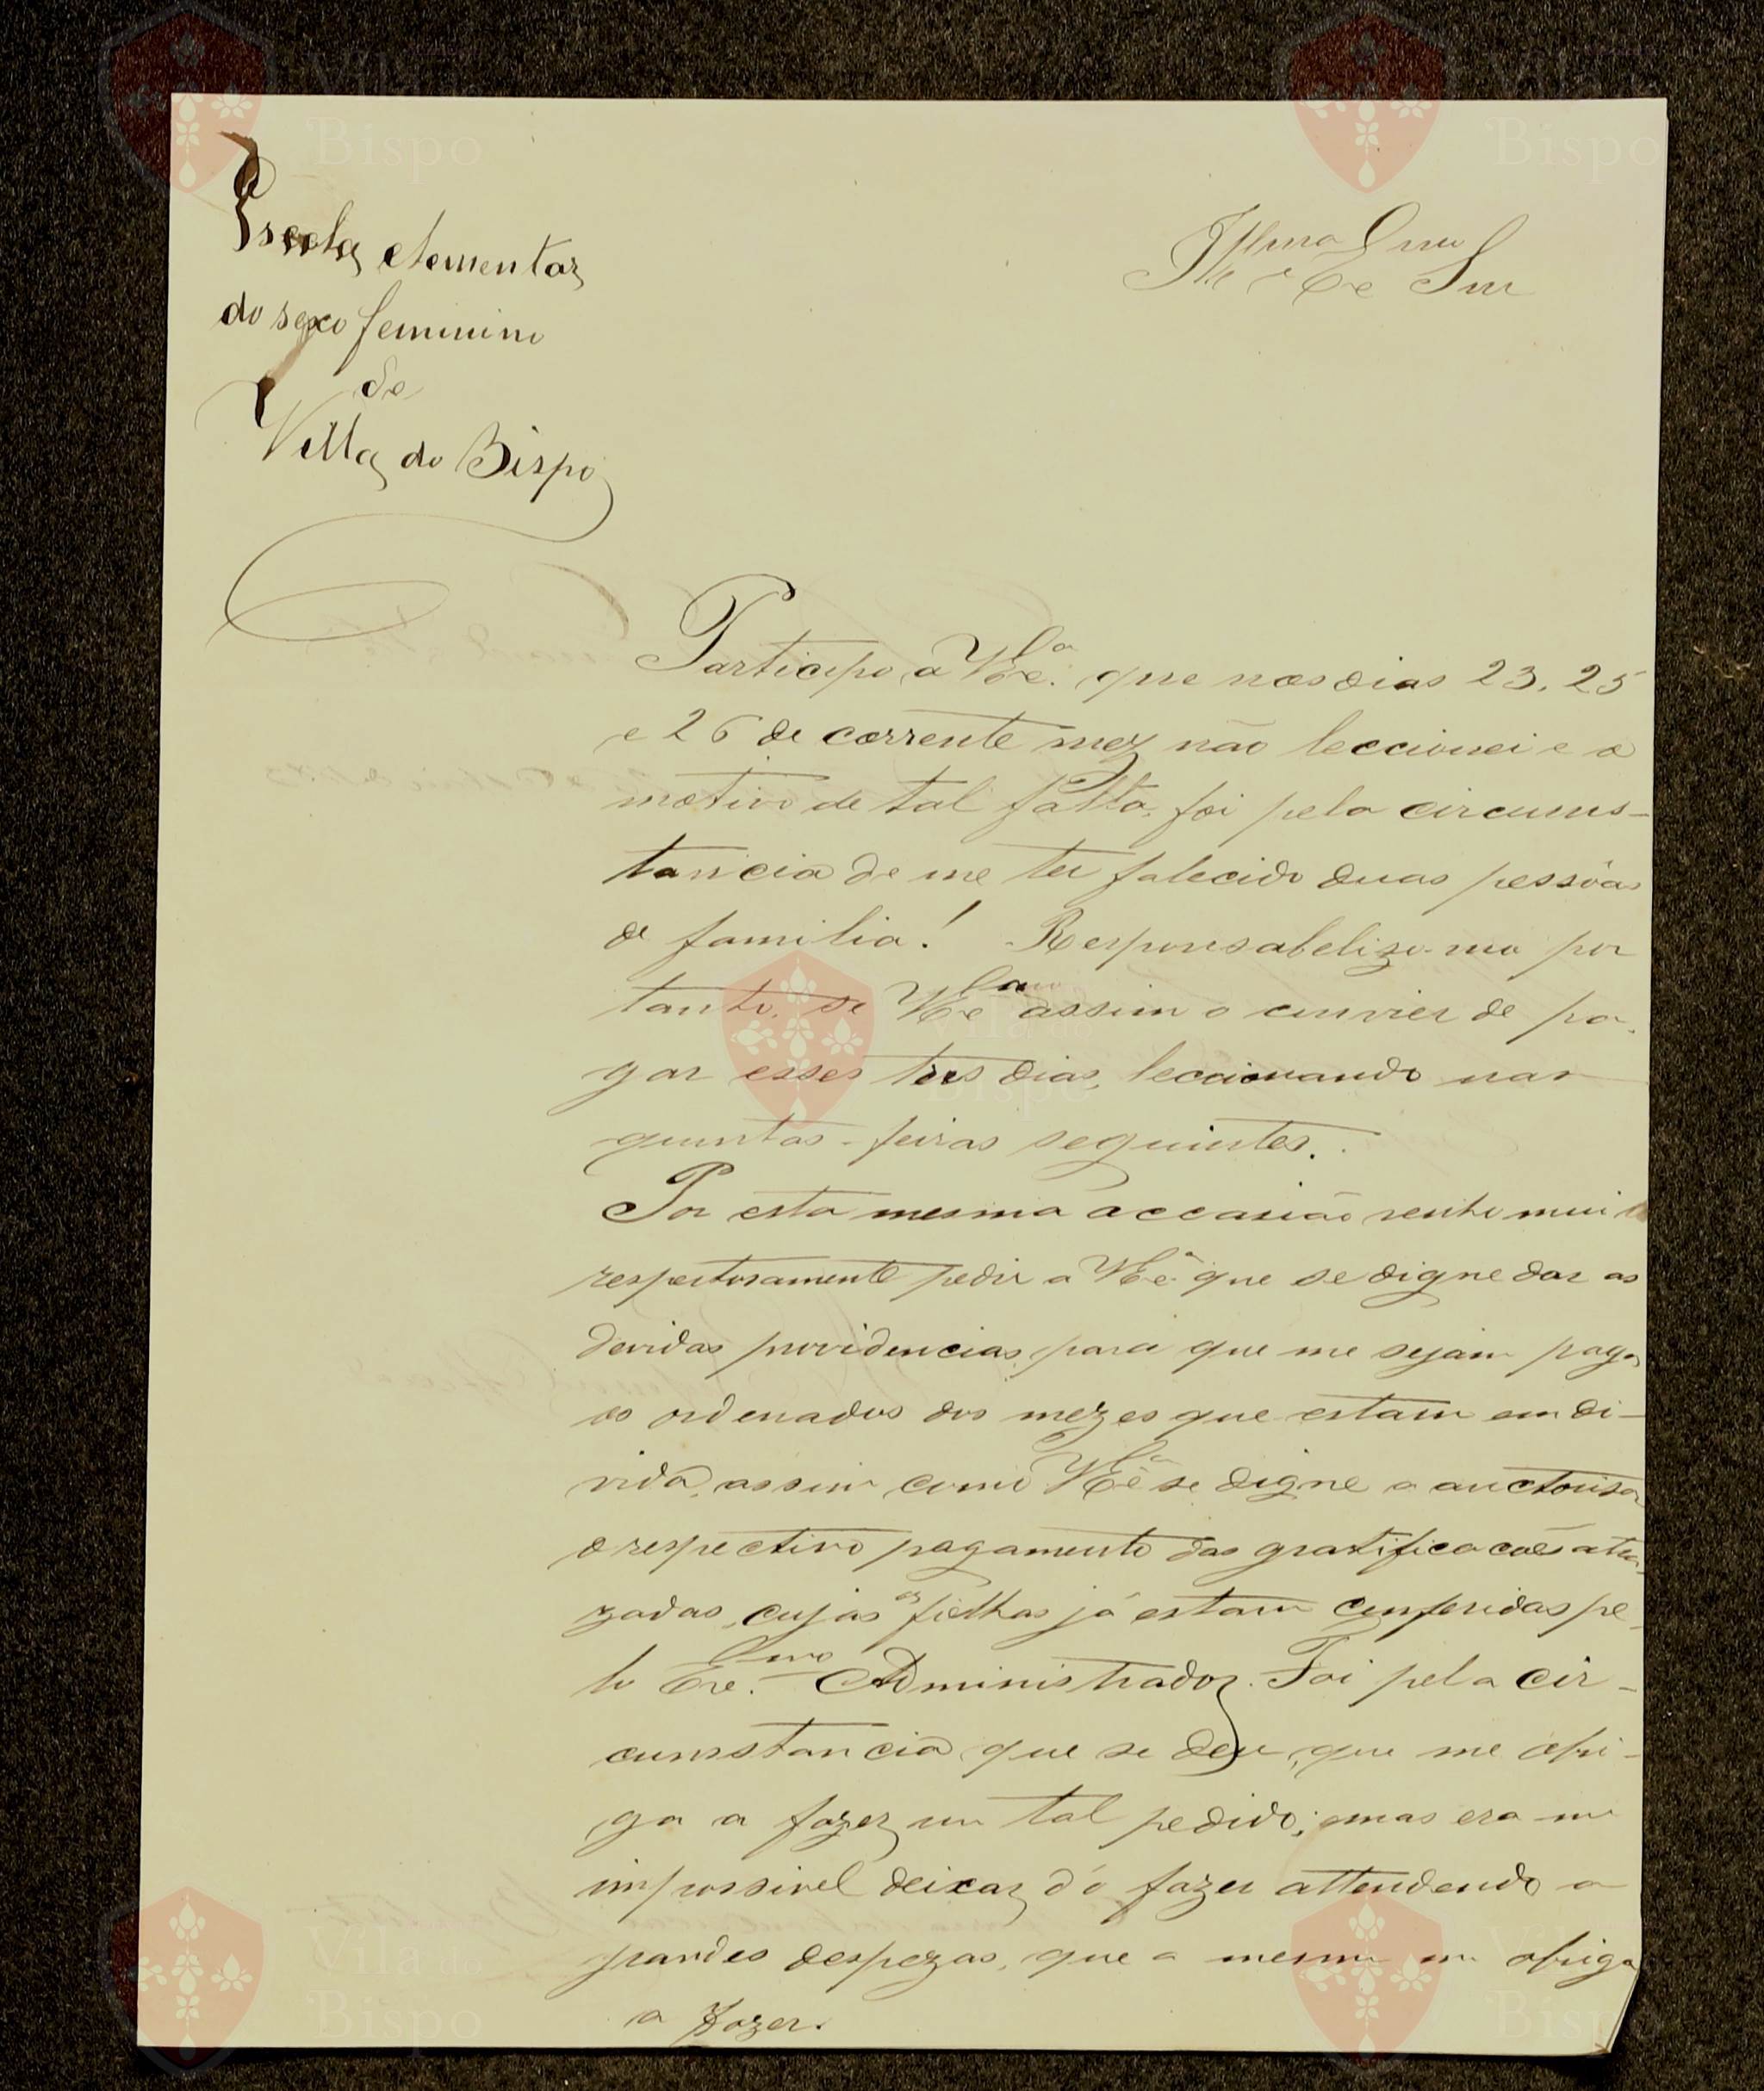 Escola elementar
do sexo feminino
de
Villa do Bispo
Illmo Exmo Snr
Participo a V Exª. que nos dias 23, 25
e 26 de corrente mez não leccionei e o
motivo de tal falta, foi pela circums-
tancia de me ter falecido duas pessôas
de familia! Responsabelizo-me por
tanto, se V Exª assim o convier de pa-
gar esses tres dias, leccionando nas
quintas-feiras seguintes.
Por esta mesma occasião venho mui
respeitosamente pedir a V Exª que se digne dar as
devidas providencias, para que me sejam pagos
os ordenados dos mezes que estam em di-
vida, assim como V Exª se digne a auctorisar
o respectivo pagamento das gratificacões atra-
zadas, cujas folhas já estam conferidas pe-
lo Exmo. Administrador. Foi pela cir-
cunstancia que se deu, que me obri-
ga a fazer um tal pedido; mas era-me
impossivel deixar dó fazer attendendo a
grandes despezas, que a mesma me obriga
a fazer.
Vila do
Bispo